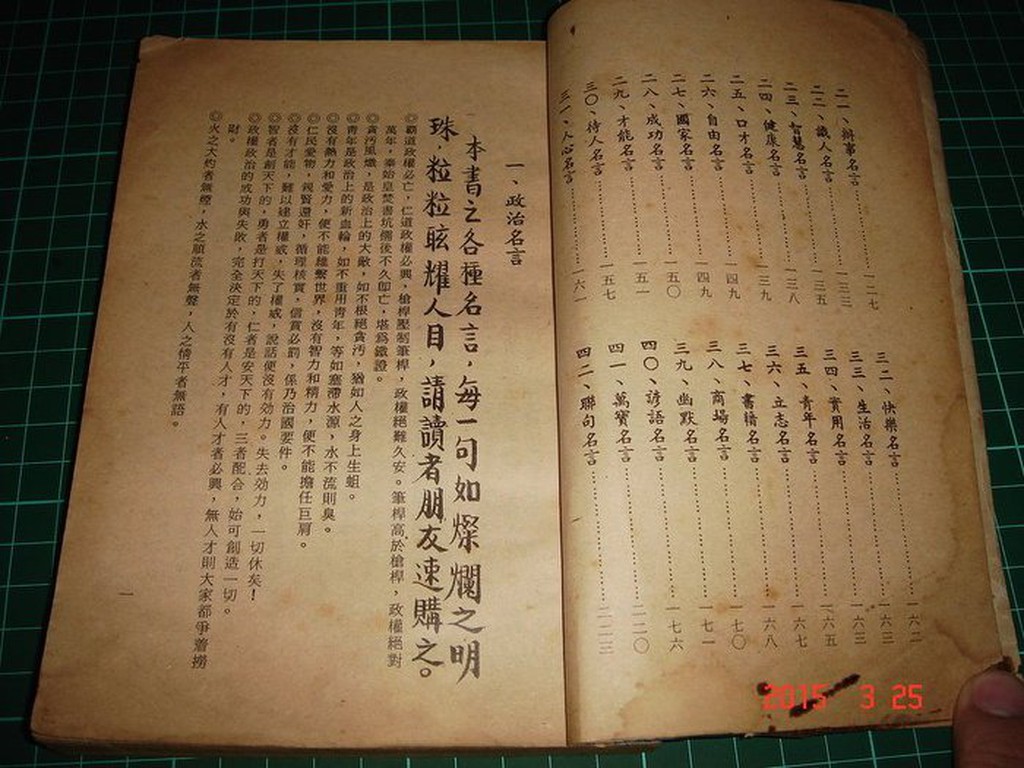 二一、辦事名言⋯⋯⋯⋯一二七
二二、識人名言⋯⋯⋯⋯一三三
二三、智慧名言⋯⋯⋯⋯一三五
二四、健康名言⋯⋯⋯⋯一三八
二五、口才名言⋯⋯⋯⋯一三九
二六、自由名言⋯⋯⋯⋯一四九
二七、國家名言⋯⋯⋯⋯一四九
二八、成功名言⋯⋯⋯⋯一五〇
二九、才能名言⋯⋯⋯⋯一五一
三〇、待人名言⋯⋯⋯⋯一五七
三一、人心名言⋯⋯⋯⋯一六一
三二、快樂名言⋯⋯⋯⋯一六二
三三、生活名言⋯⋯⋯⋯一六三
三四、實用名言⋯⋯⋯⋯一六三
三五、青年名言⋯⋯⋯⋯一六五
三六、立志名言⋯⋯⋯⋯一六七
三七、書籍名言⋯⋯⋯⋯一六八
三八、商場名言⋯⋯⋯⋯一七〇
三九、幽默名言⋯⋯⋯⋯一七一
四〇、諺語名言⋯⋯⋯⋯一七六
四一、萬寶名言⋯⋯⋯⋯二二〇
四二、聯句名言⋯⋯⋯⋯二二三
一、政治名言
本書之各種名言，每一句如燦爛之明
珠，粒粒眩耀人目，請讀者朋友速購之。
◎霸道政權必亡，仁道政權必興，槍桿壓制筆桿，政權絕難久安。筆桿高於槍桿，政權絕對
萬年，秦始皇焚書坑儒後不久即亡，堪爲鐵證。
◎貪污風熾，是政治上的大敵，如不根絕貪污，猶如人之身上生蛆。
◎青年是政治上的新血輪，如不重用青年，等如塞滯水源，水不流則臭。
◎沒有熱力和愛力，便不能維繫世界，沒有智力和精力，便不能擔任巨肩。
◎仁民愛物，親賢遠奸，循理核實，信賞必罰，係乃治國要件。
◎沒有才能，難以建立權威，失了權威，說話便沒有效力。失去效力，一切休矣！
◎智者是創天下的，勇者是打天下的，仁者是安天下的，三者配合，始可創造一切。
◎政權政治的成功與失敗，完全決定於有沒有人才，有人才者必興，無人才則大家都爭着撈
財。
◎火之大灼者無煙，水之順流者無聲，人之情平者無語。
一
2015 3 25